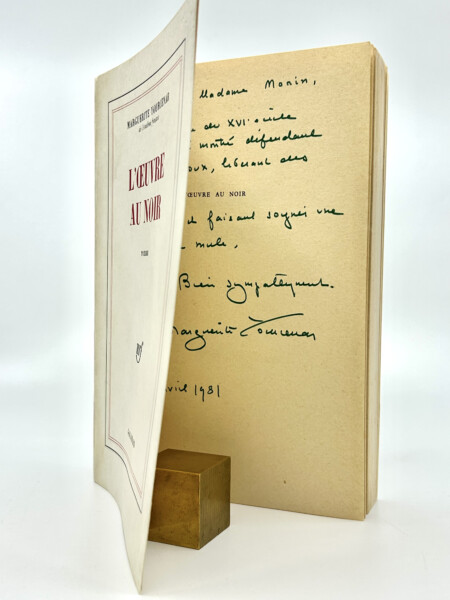 MARGUERITE YOURCENAR
de l'Académie française
L'ŒUVRE
AU NOIR
nrf
Madame Monin,
de XVIe siècle
montré défendant
libérant des
ŒUVRE AU NOIR
faisant soigner une
mule,
Bien sympathiquement.
Marguerite Yourcenar
avril 1981